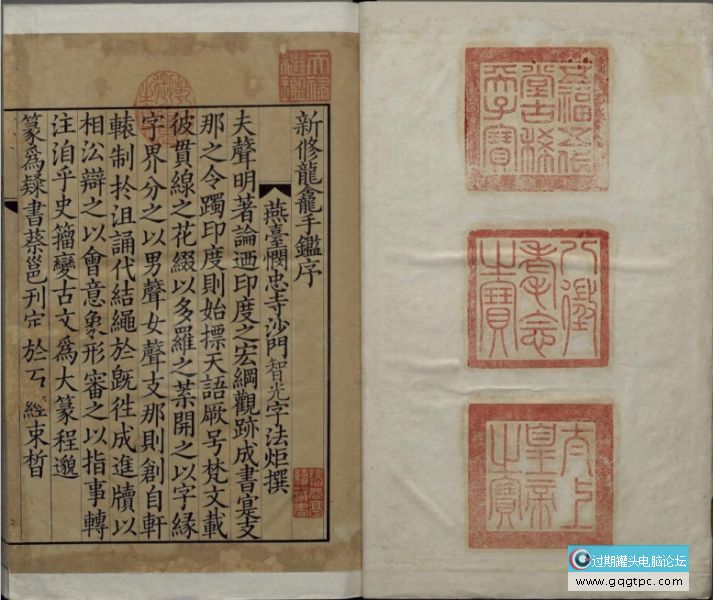 五福五代
堂古稀
天子寶
八徵
耄念
之寶
太上
皇帝
之寶
天祿
繼鑑
新修龍龕手鑑序
燕臺憫忠寺沙門智光字法炬撰
夫聲明著論迺印度之宏綱觀跡成書寔支
那之令躅印度則始標天語厥号梵文載
彼貫線之花綴以多羅之葉開之以字緣
字界分之以男聲女聲支那則創自軒
轅制扵沮誦代結繩於旣徃成進牘以
相㳂辯之以會意象形審之以指事轉
注洎乎史籀變古文爲大篆程邈
篆爲隸書蔡邕刊定於石經束晳
过期罐头电脑论坛
www.gqgtpc.com